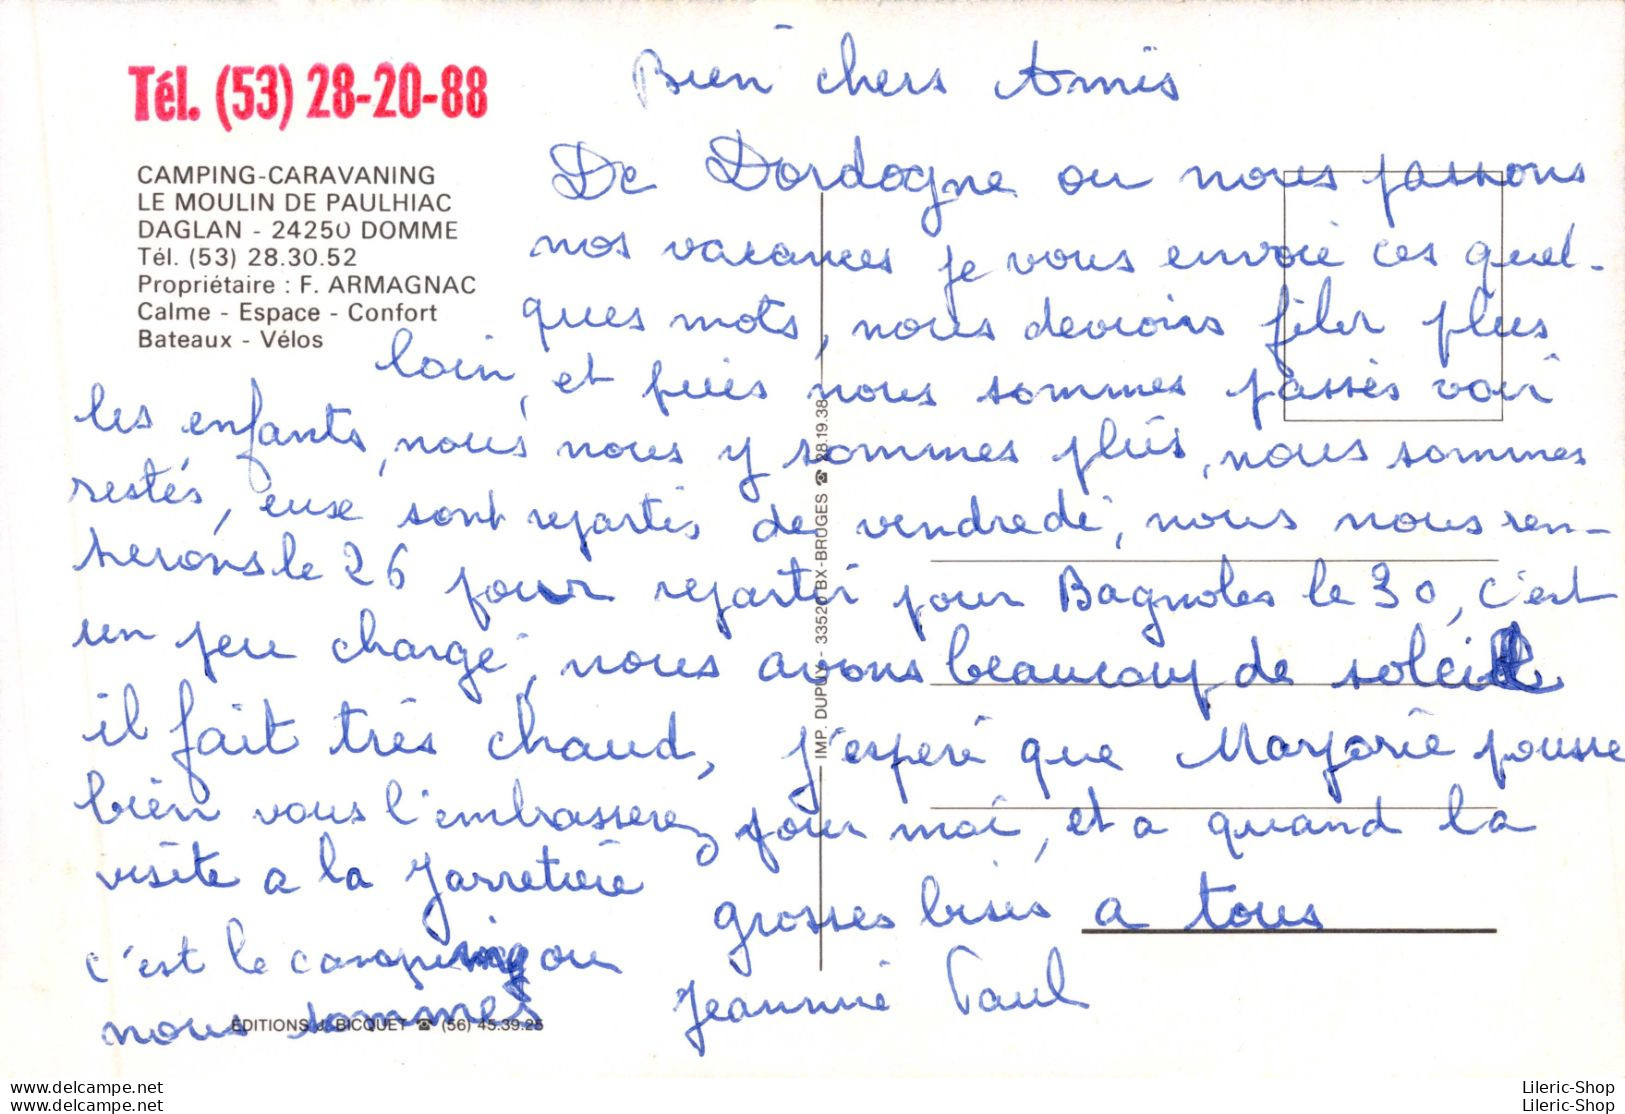 Tél. (53) 28-20-88
CAMPING-CARAVANING
LE MOULIN DE PAULHIAC
DAGLAN - 24250 DOMME
Tél. (53) 28.30.52
Propriétaire : F. ARMAGNAC
Calme - Espace - Confort
Bateaux - Vélos
Bien chers Amis
De Dordogne ou nous passons
nos vacances je vous envoie ces quel-
ques mots, nous devions filer plus
loin, et puis nous sommes passés voir
les enfants, nous nous y sommes plus, nous sommes
restés, eux sont repartis de vendredi, nous nous ren-
trerons le 26 pour repartir pour Bagnoles le 30, c'est
un peu chargé, nous avons beaucoup de soleil
il fait très chaud, j'espère que Marjorie pousse
bien vous l'embrasserez pour moi, et a quand la
visite a la Jarretière
grosses bises a tous
Jeannine Paul
c'est le camping ou
nous sommes
IMP. DUPUY - 33520 BX-BRUGES ☎ 28.19.38
EDITIONS J. BICQUET ☎ (56) 45.39.25
www.delcampe.net
www.delcampe.net
Lileric-Shop
Lileric-Shop